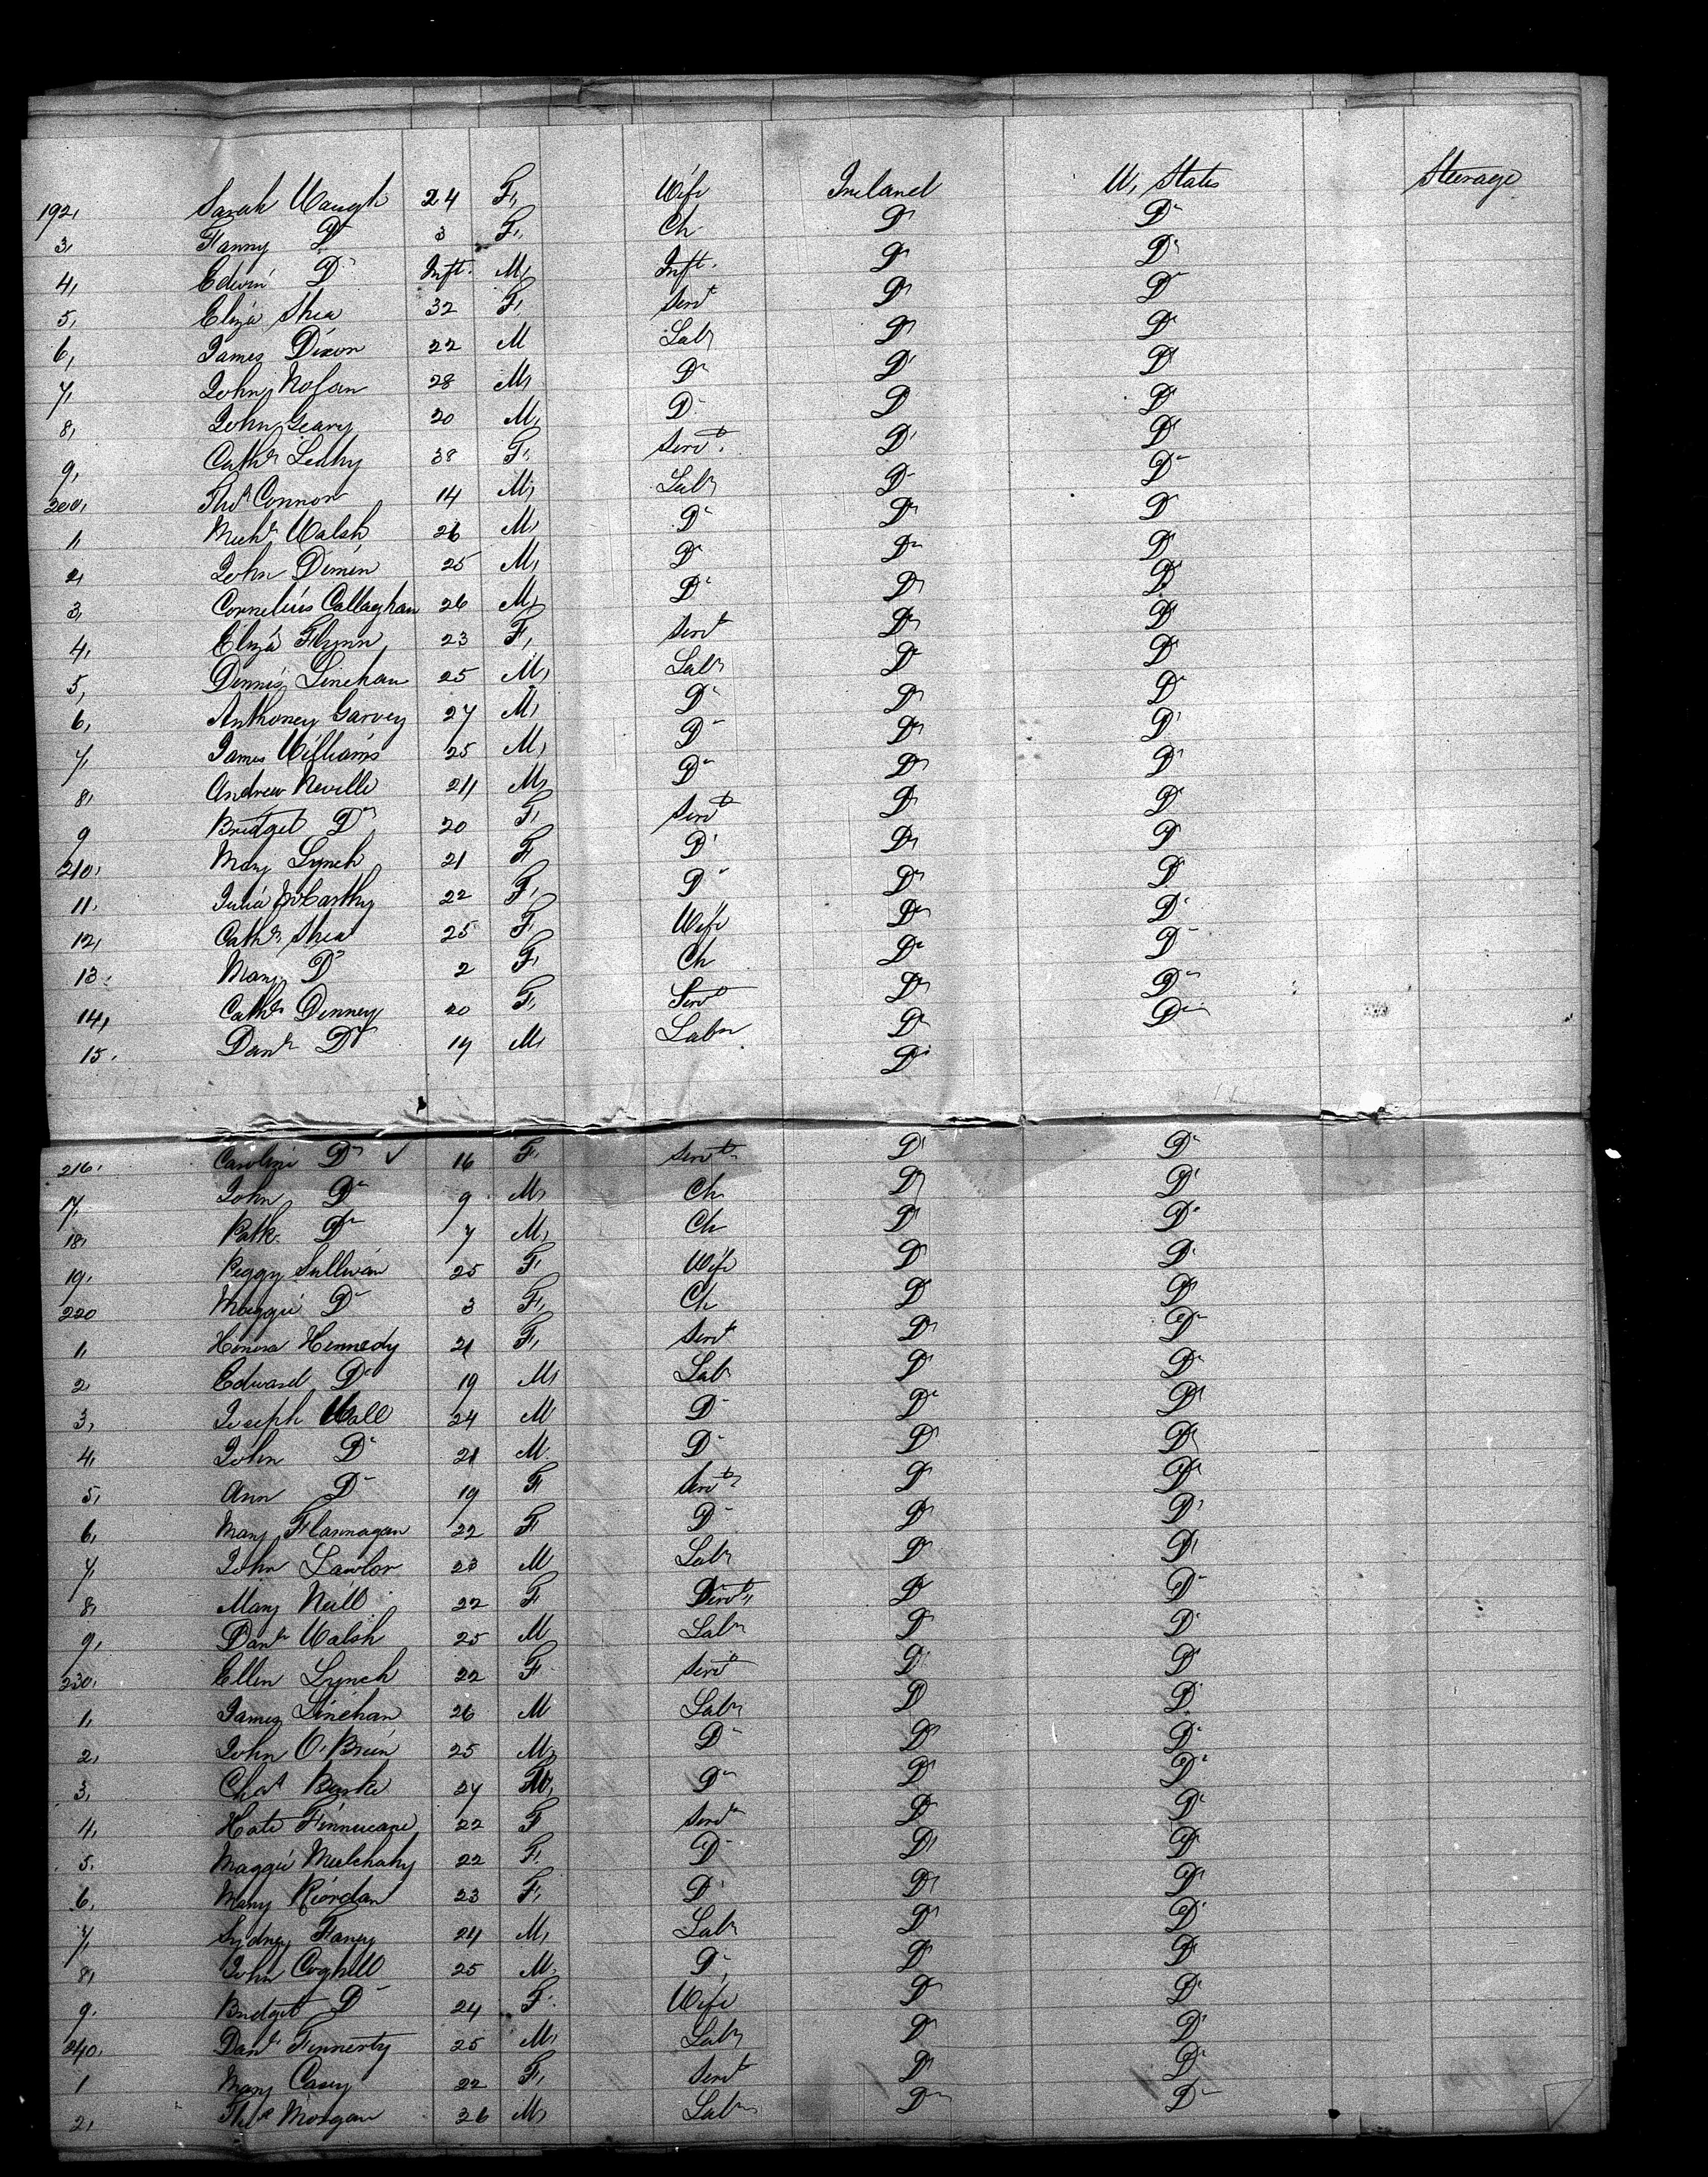 192, Sarah Waugh 24 F, Wife Ireland U, States Steerage
3, Fanny Do 3 F, Ch Do Do
4, Edwin Do Inft. M, Inft. Do Do
5, Eliza Shea 32 F, Servt Do Do
6, James Dixon 22 M Labr Do Do
7, John Nolan 28 M, Do Do Do
8, John Geary 20 M, Do Do Do
9, Cathn Leahy 38 F, Servt. Do Do
200, Thos Connor 14 M, Labr Do Do
1, Michl Walsh 26 M, Do Do Do
2, John Dinnen 25 M, Do Do Do
3, Cornelius Callaghan 26 M, Do Do Do
4, Eliza Flynn 23 F, Servt Do Do
5, Dennis Linehan 25 M, Labr Do Do
6, Anthoney Garvey 27 M, Do Do Do
7, James Williams 25 M, Do Do Do
8, Andrew Neville 24 M, Do Do Do
9 Bridget Do 20 F, Servt Do Do
210, Mary Lynch 21 F, Do Do Do
11, Julia McCarthy 22 F, Do Do Do
12, Cathn Shea 25 F, Wife Do Do
13, Mary Do 2 F, Ch Do Do
14, Cathn Denney 20 F, Servt Do Do
15, Danl Do 19 M, Labr Do
216, Caroline Do ✓ 16 F, Servt Do Do
17, John Do 9 M, Ch Do Do
18, Patk Do 7 M, Ch Do Do
19, Peggy Sullivan 25 F, Wife Do Do
220 Maggie Do 3 F, Ch Do Do
1, Honora Kennedy 21 F, Servt Do Do
2, Edward Do 19 M, Labr Do Do
3, Joseph Wall 24 M Do Do Do
4, John Do 21 M. Do Do Do
5, Ann Do 19 F Servt Do Do
6, Mary Flannagan 22 F Do Do Do
7, John Lawlor 23 M Labr Do Do
8, Mary Neill 22 F Servt Do Do
9, Danl Walsh 25 M Labr Do Do
230, Ellen Lynch 22 F Servt Do Do
1, James Linehan 26 M Labr Do Do
2, John O'Brien 25 M, Do Do Do
3, Chas Burke 27 M, Do Do Do
4, Kate Finnucane 22 F Servt Do Do
5, Maggie Mulchahy 22 F, Do Do Do
6, Mary Riordan 23 F, Do Do Do
7, Sydney Faney 24 M, Labr Do Do
8, John Coghill 25 M, Do Do Do
9, Bridget Do 24 F. Wife Do Do
240, Danl Finnerty 25 M, Labr Do Do
1 Mary Casey 22 F, Servt Do Do
2, Thos Morgan 26 M, Labr Do Do